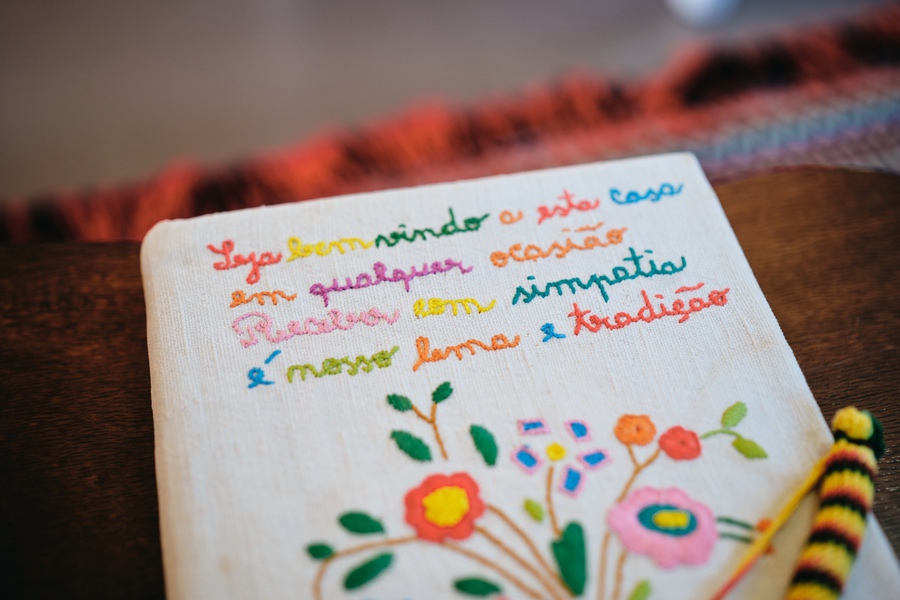 Seja bem vindo a esta casa
em qualquer ocasião
Receber com simpatia
é nosso lema e tradição